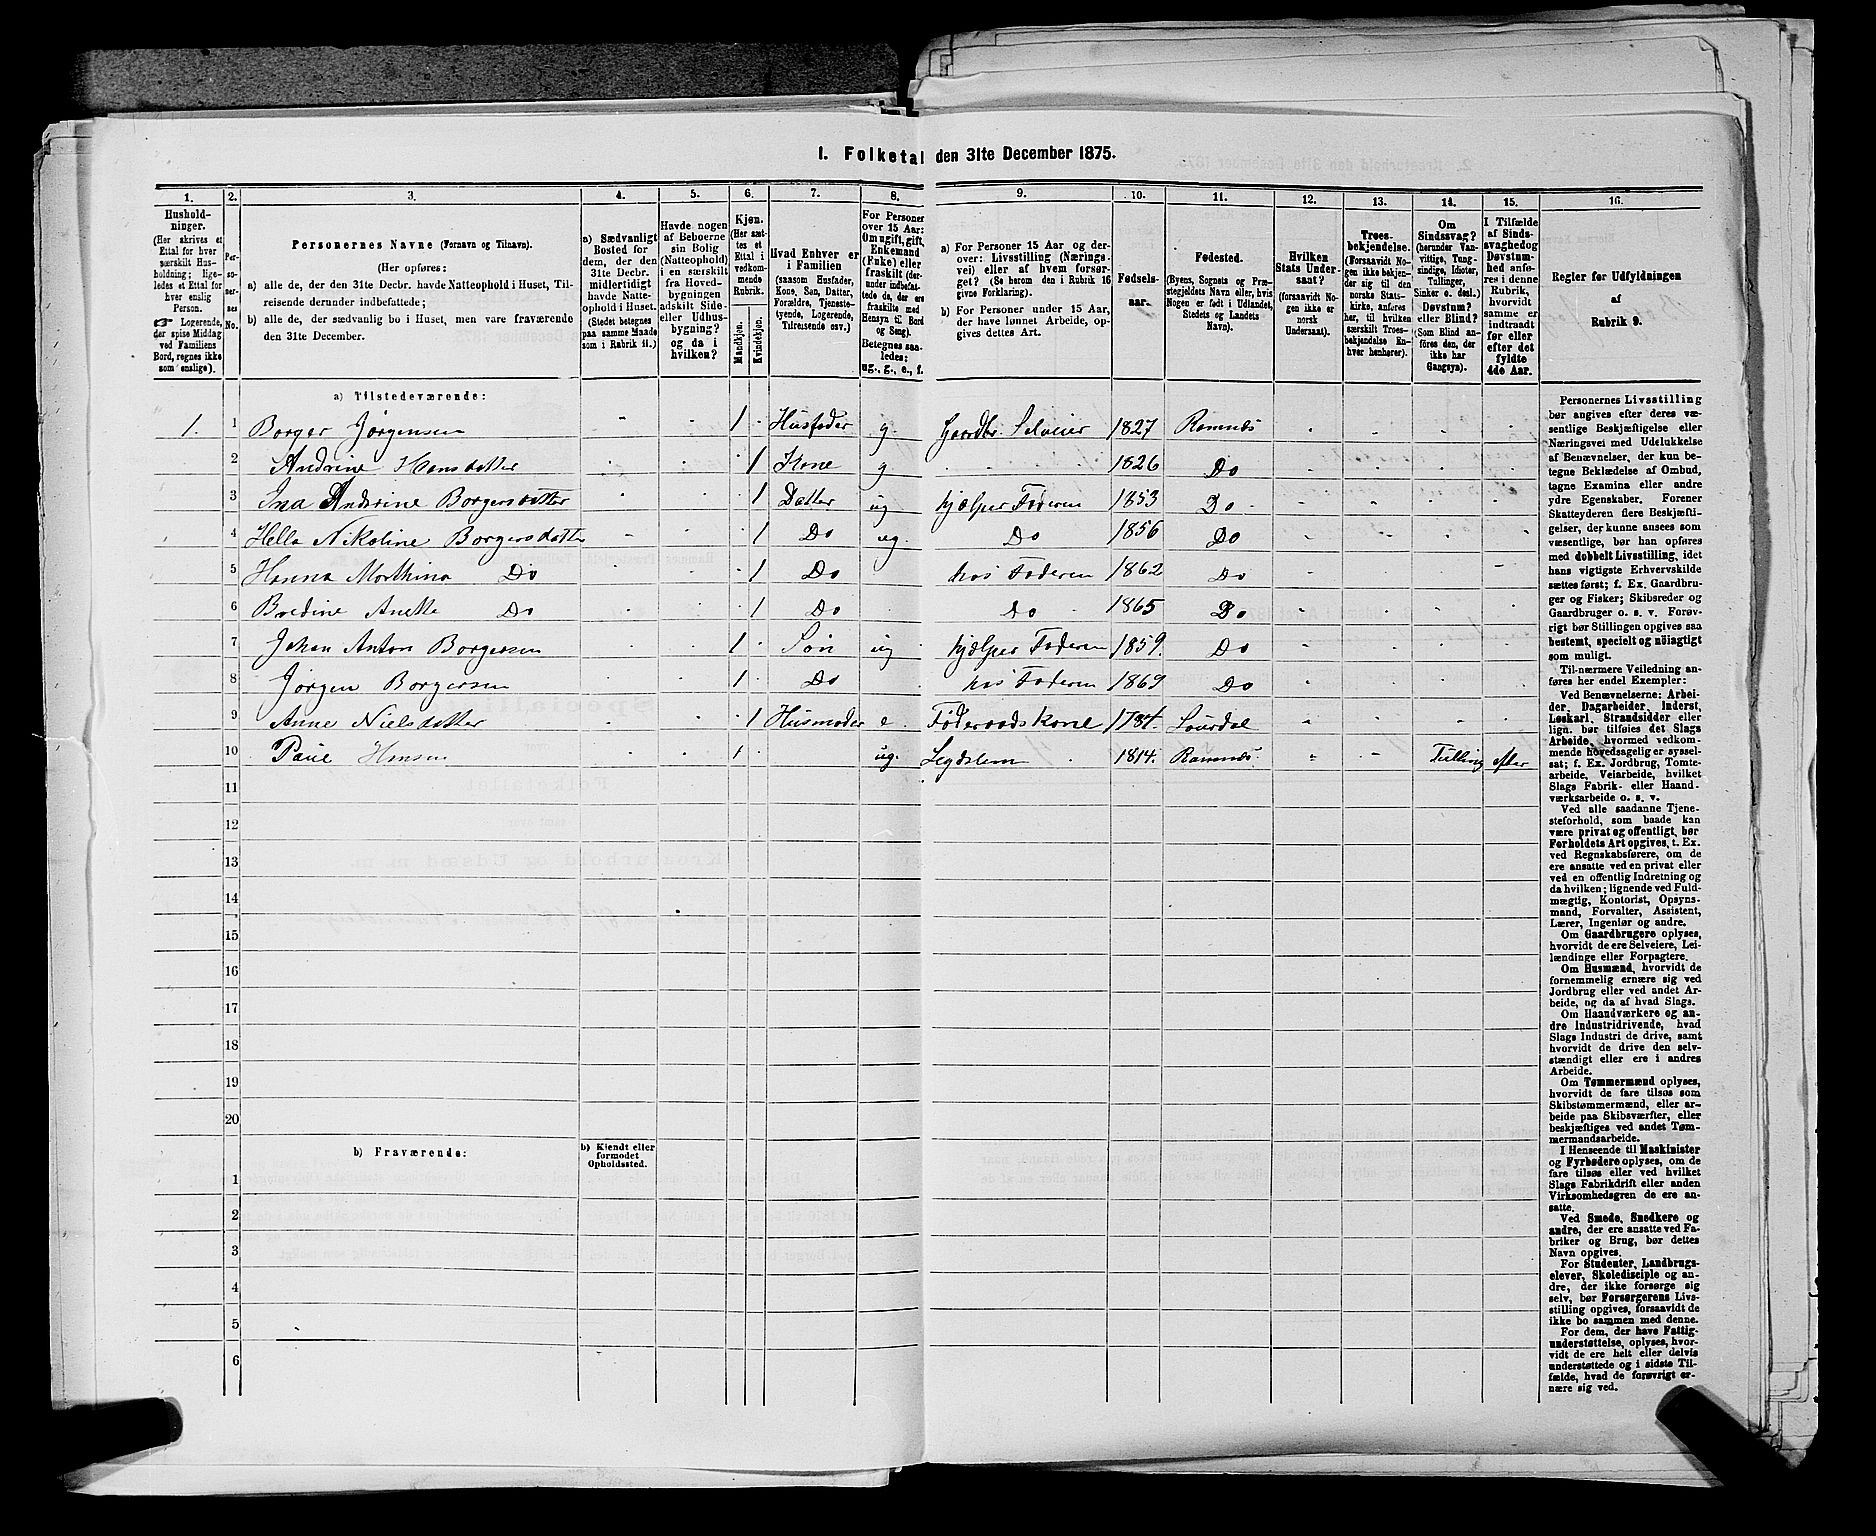 1. Folketal den 31te December 1875.
1. 2. 3. 4. 5. 6. 7. 8. 9. 10. 11. 12. 13. 14. 15. 16.
Hushold-
ninger.
(Her skrives et
Ettal for hver
særskilt Hus-
holdning; lige-
ledes et Ettal for
hver enslig
Person.
☞ Logerende,
der spise Middag
ved Familiens
Bord, regnes ikke
som enslige).
Per-
so-
ner-
ses
No.
Personernes Navne (Fornavn og Tilnavn).
(Her opføres:
a) alle de, der den 31te Decbr. havde Natteophold i Huset, Til-
reisende derunder indbefattede;
b) alle de, der sædvanlig bo i Huset, men vare fraværende
den 31te December.
a) Sædvanligt
Bosted for
dem, der den
31te Decbr.
midlertidigt
havde Natte-
ophold i Huset.
(Stedet betegnes
paa samme Maade
som i Rubrik 11.)
Havde nogen
af Beboerne
sin Bolig
(Natteophold)
i en særskilt
fra Hoved-
bygningen
adskilt Side-
eller Udhus-
bygning?
og da i
hvilken?
Kjøn.
(Her sæt-
tes et
Ettal i
vedkom-
mende
Rubrik.
Mandkjøn.
Kvindekjøn.
Hvad Enhver er
i Familien
(saasom Husfader,
Kone, Søn, Datter,
Forældre, Tjeneste-
tyende, Logerende,
Tilreisende osv.)
For Personer
over 15 Aar:
Om ugift, gift,
Enkemand
(Enke) eller
fraskilt (der-
under indbefat-
tede de, der ere
fraskilte med
Hensyn til Bord
og Seng).
Betegnes saa-
ledes:
ug., g., e., f.
a) For Personer 15 Aar og der-
over: Livsstilling (Nærings-
vei) eller af hvem forsør-
get? (Se herom den i Rubrik 16
givne Forklaring).
b) For Personer under 15 Aar,
der have lønnet Arbeide, op-
gives dettes Art.
Fødsels-
aar.
Fødested.
(Byens, Sognets og Præ-
stegjeldets Navn eller, hvis
Nogen er født i Udlandet,
Stedets og Landets
Navn).
Hvilken
Stats Under-
saat?
(forsaavidt No-
gen ikke er
norsk
Undersaat).
Troes-
bekjendelse.
(Forsaavidt No-
gen ikke bekjen-
der sig til den
norske Stats-
kirke, anføres
her, til hvilken
særskilt Troes-
bekjendelse En-
hver henhører).
Om
Sindssvag?
(herunder Van-
vittige, Tung-
sindige, Idioter,
Tullinger,
Sinker o. desl.)
Døvstum?
eller Blind?
(Som Blind an-
føres den, der
ikke har
Gangsyn).
I Tilfælde
af Sinds-
svaghed og
Døvstum-
hed anfø-
res i denne
Rubrik,
hvorvidt
samme er
indtraadt
før eller
efter det
fyldte
4de Aar.
Regler for Udfyldningen
af
Rubrik 9.
a) Tilstedeværende:
1. 1 Borger Jørgensen - - 1 Husfader g. Gaardbr. Selveier 1827 Ramnæs
2 Andrine Hansdatter 1 Kone g 1826 Do
3 Ina Andrine Borgersdatter 1 Datter ug hjælper Faderen 1853 Do
4 Hella Nikoline Borgersdatter 1 Do ug. Do 1856 Do
5 Hanna Marthina Do 1 Do hos Faderen 1862 Do
6 Bredine Anette Do 1 Do Do 1865 Do
7 Johan Anton Borgersen 1 Søn ug hjælper Faderen 1859. Do
8 Jørgen Borgersen 1 Do hos Faderen 1869 Do
9 Anne Nielsdatter 1 Husmoder e. Føderaadskone 1784. Laurdal
10 Paul Hansen 1 ug. Legdslem 1814. Ramnæs. Tulling efter
11
12
13
14
15
16
17
18
19
20
b) Fraværende:
b) Kjendt eller
formodet
Opholdssted.
1
2
3
4
5
6
Personernes Livsstilling
bør angives efter deres væ-
sentlige Beskjæftigelse eller
Næringsvei med Udelukkelse
af Benævnelser, der kun be-
tegne Beklædelse af Ombud,
tagne Examina eller andre
ydre Egenskaber. Forener
Skatteyderen flere Beskjæfti-
gelser, der kunne ansees som
væsentlige, bør han opføres
med dobbelt Livsstilling, idet
hans vigtigste Erhvervskilde
sættes først; f. Ex. Gaardbru-
ger og Fisker; Skibsreder og
Gaardbruger o. s. v. Forøv-
rigt bør Stillingen opgives saa
bestemt, specielt og nöiagtigt
som muligt.
Til-nærmere Veiledning an-
føres her endel Exempler:
Ved Benævnelserne: Arbei-
der, Dagarbeider, Inderst,
Løskarl, Strandsidder eller
lign. bør tilføies det Slags
Arbeide, hvormed vedkom-
mende hovedsagelig er syssel-
sat; f. Ex. Jordbrug, Tomte-
arbeide, Veiarbeide, hvilket
Slags Fabrik- eller Haand-
værksarbeide o. s. v.
Ved alle saadanne Tjene-
steforhold, som baade kan
være privat og offentligt, bør
Forholdets Art opgives, t. Ex.
ved Regnskabsførere, om de
ere ansatte ved en privat eller
ved en offentlig Indretning og
da hvilken; lignende ved Fuld-
mægtig, Kontorist, Opsyns-
mand, Forvalter, Assistent,
Lærer, Ingeniør og andre.
Om Gaardbrugere oplyses,
hvorvidt de ere Selveiere, Lei-
lændinge eller Forpagtere.
Om Husmænd, hvorvidt de
fornemmelig ernære sig ved
Jordbrug eller ved andet Ar-
beide, og da af hvad Slags.
Om Haandværkere og an-
dre Industridrivende, hvad
Slags Industri de drive, samt
hvorvidt de drive den selv-
stændigt eller ere i andres
Arbeide.
Om Tømmermænd oplyses,
hvorvidt de fare tilsøs som
Skibstømmermænd, eller ar-
beide paa Skibsværfter, eller
beskjæftiges ved andet Tøm-
mermandsarbeide.
I Henseende til Maskinister
og Fyrbødere oplyses, om de
fare tilsøs eller ved hvilket
Slags Fabrikdrift eller anden
Virksomhedsgren de ere an-
satte.
Ved Smede, Snedkere og
andre, der ere ansatte ved Fa-
briker og Brug, bør dettes
Navn opgives.
For Studenter, Landbrugs-
elever, Skoledisciple og an-
dre, der ikke forsørge sig
selv, bør Forsørgerens Livs-
stilling opgives, forsaavidt de
ikke bo sammen med denne.
For dem, der have Fattig-
understøttelse, oplyses, hvor-
vidt de ere helt eller delvis
understøttede og i sidste Til-
fælde, hvad de forøvrigt er-
nære sig ved.